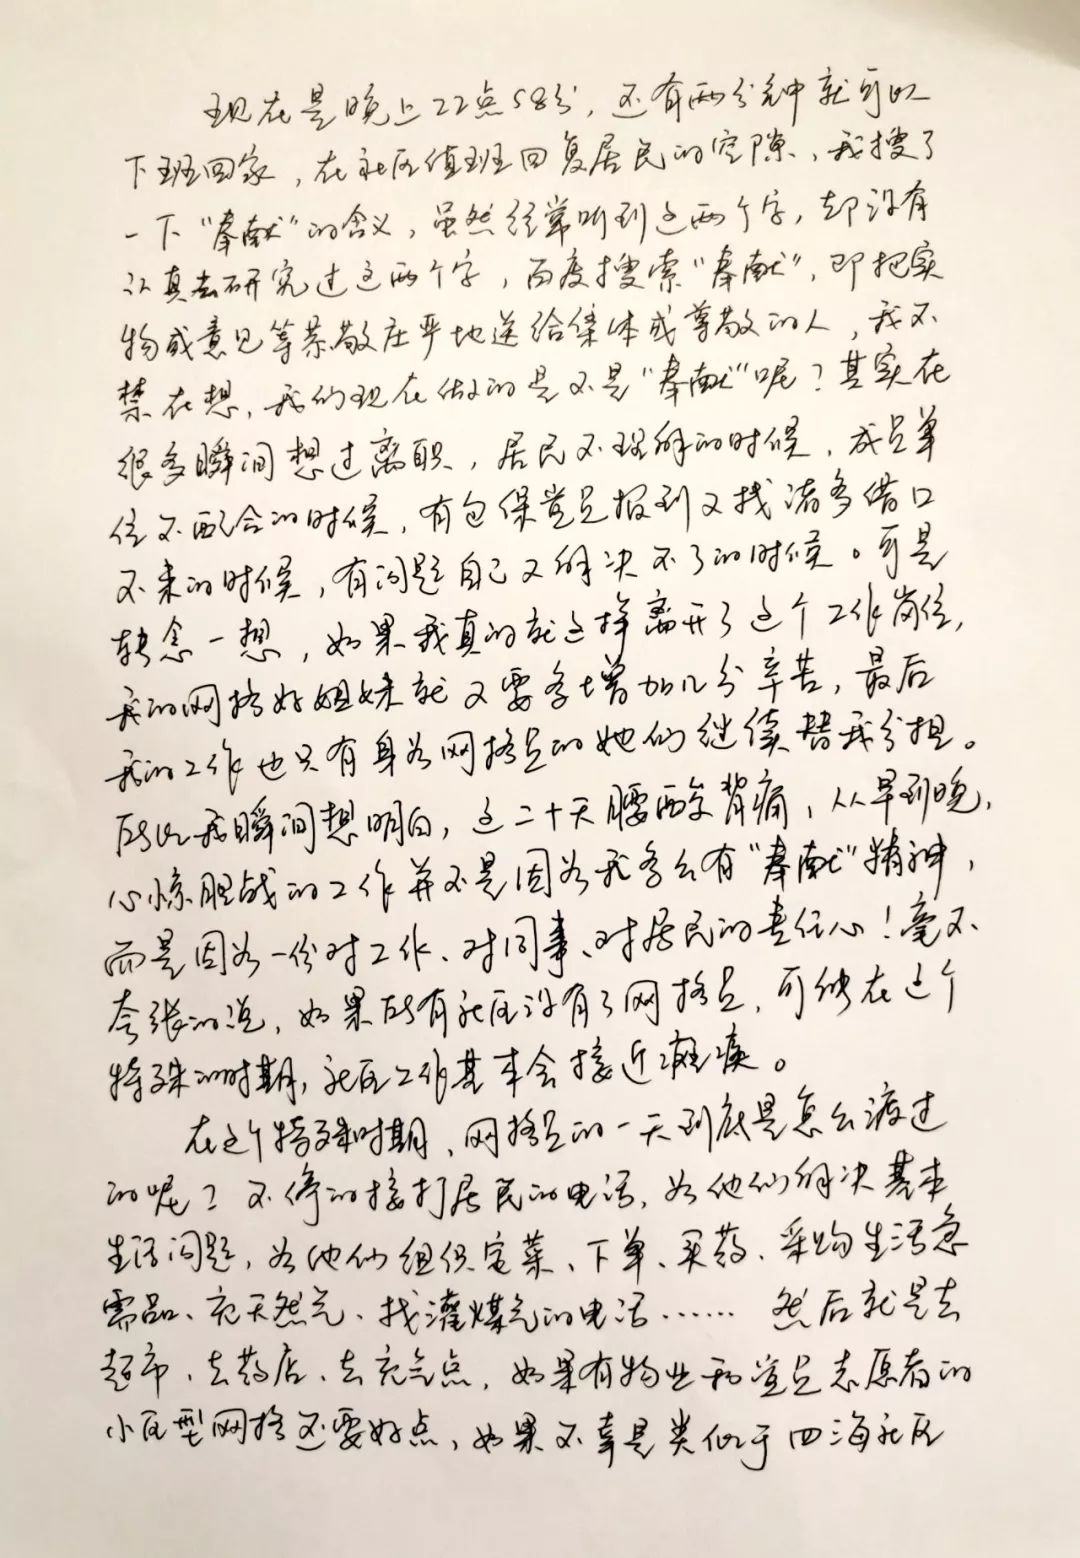 现在是晚上22点58分，还有两分钟就可以
下班回家，在社区值班回复居民的空隙，我搜了
一下“奉献”的含义，虽然经常听到这两个字，却没有
认真去研究过这两个字，百度搜索“奉献”，即把实
物或意见等恭敬庄严地送给集体或尊敬的人，我不
禁在想，我们现在做的是不是“奉献”呢？其实在
很多瞬间想过离职，居民不理解的时候，成员单
位不配合的时候，有包保党员报到又找诸多借口
不来的时候，有问题自己又解决不了的时候。可是
转念一想，如果我真的就这样离开了这个工作岗位，
我的网格好姐妹就又要多增加几分辛苦，最后
我的工作也只有身为网格员的她们继续替我分担。
所以我瞬间想明白，这二十天腰酸背痛，从早到晚，
心惊胆战的工作并不是因为我多么有“奉献”精神，
而是因为一份对工作、对同事、对居民的责任心！毫不
夸张的说，如果所有社区没有了网格员，可能在这个
特殊的时期，社区工作基本会接近瘫痪。
在这个特殊时期，网格员的一天到底是怎么渡过
的呢？不停的接打居民的电话，为他们解决基本
生活问题，为他们组织定菜、下单、买药、采购生活急
需品、充天然气、找灌煤气的电话…… 然后就是去
超市、去药店、去充气点，如果有物业和党员志愿者的
小区型网格还要好点，如果不幸是类似于四海社区